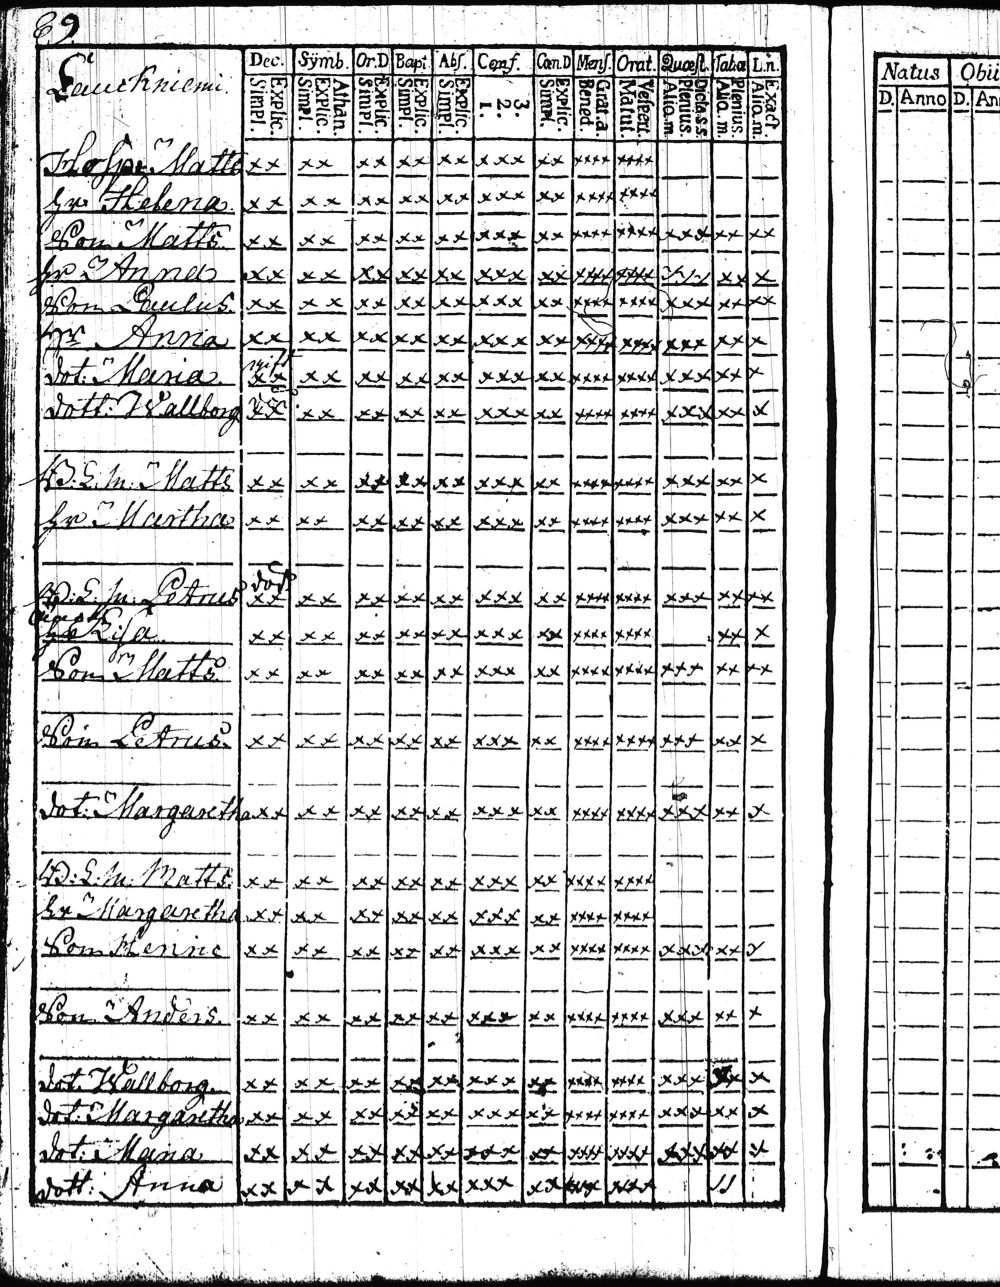 69.
Dec. Symb. Or.D Bapt. Abs. Conf. Cœn.D Mens. Orat. Quæst. Tabæ L.n. Natus Obii
Lauckniemi. Simpl. Explic. Simpl. Explic. Athan. Simpl. Explic. Simpl. Explic. Simpl. Explic. 1. 2. 3. Simpl. Explic. Bened. Grat.a Matut. Vespert. Alio.m Plenius. Dicta s.s. Alio.m Plenius. Alio.m. Exact D. Anno D. An
Matts x x x x x x x x x x x x x x x x x x x x x x x
hr Helena. x x x x x x x x x x x x x x x x x x x x x x x
Son Matts. x x x x x x x x x x x x x x x x x x x x x x x x x x x x x x
hr Anna x x x x x x x x x x x x x x x x x x x x x x x x x x
Son Paulus. x x x x x x x x x x x x x x x x x x x x x x x x x x x x x x
hr Anna x x x x x x x x x x x x x x x x x x x x x x x x x x x x x
gift
dot. Maria. x x x x x x x x x x x x x x x x x x x x x x x x x x x x x
dott: Wallborg x x x x x x x x x x x x x x x x x x x x x x x x x x x x x
Matts x x x x x x x x x x x x x x x x x x x x x x x x x x x x x
hr Martha x x x x x x x x x x x x x x x x x x x x x x x x x x x x x
död
Petrus x x x x x x x x x x x x x x x x x x x x x x x x x x x x x x
Lisa x x x x x x x x x x x x x x x x x x x x x x x x x x
Son Matts x x x x x x x x x x x x x x x x x x x x x x x x x x x x x x
Son Petrus. x x x x x x x x x x x x x x x x x x x x x x x x x x x x x
dot: Margaretha x x x x x x x x x x x x x x x x x x x x x x x x x x x x x
Matts. x x x x x x x x x x x x x x x x x x x x x x x
hr Margaretha x x x x x x x x x x x x x x x x x x x x x x x
Son Henric x x x x x x x x x x x x x x x x x x x x x x x x x x x x x
Son Anders. x x x x x x x x x x x x x x x x x x x x x x x x x x x x x
dot. Wallborg. x x x x x x x x x x x x x x x x x x x x x x x x x x x x x
dot: Margaretha x x x x x x x x x x x x x x x x x x x x x x x x x x x x x
dot: Maria x x x x x x x x x x x x x x x x x x x x x x x x x x x x x
dott: Anna x x x x x x x x x x x x x x x x x x x x x x